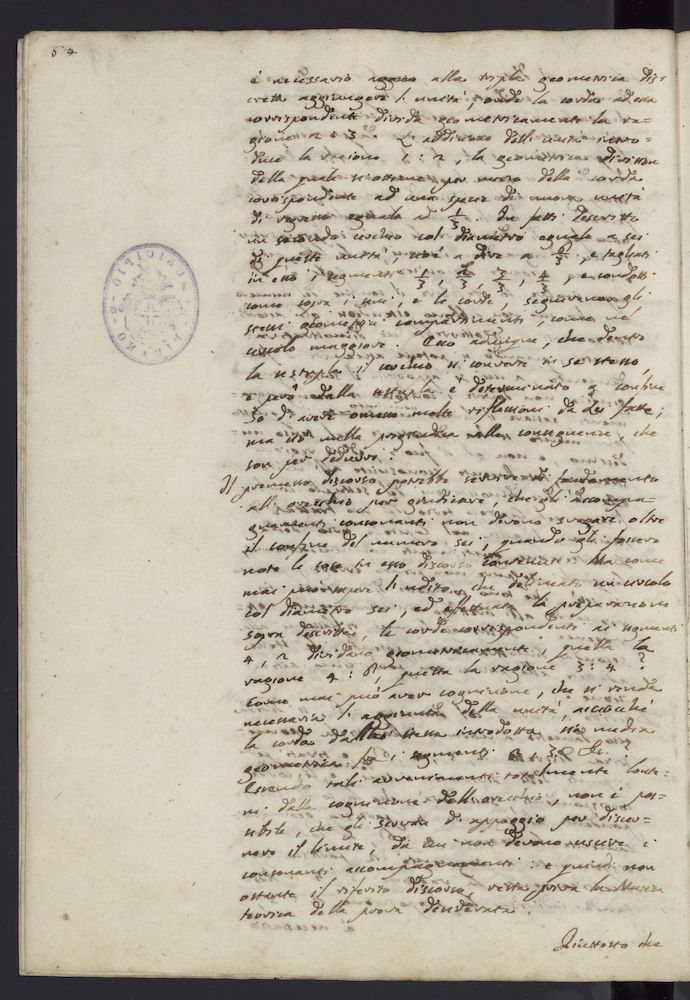 54
è necessario appresso alla tripla geometrica dis-
creta aggiungere l'unità, onde la corda ad essa
corrispondente divida geometricamente la ra-
gione 2 : 3. L'addizione dell'unità intro-
duce la ragione 1 : 2, la geometrica divisione
della quale si ottiene per mezzo della corda
corrispondente ad una specie di nuova unità
di segmento eguale ad 1/3. In fatti descritto
un secondo cerchio col diametro eguale a sei
di queste unità, cioè a dire a 6/3, e tagliati
in esso i segmenti 1/3, 2/3, 3/3, 4/3, e condotti
come sopra i seni, e le corde, seguiranno gli
stessi geometrici compartimenti, come nel
circolo maggiore. Ecco adunque, che dentro
la sestupla il cerchio si converte in se stesso
e però dalla sestupla è determinato, e confina
So d'avere omesse molte riflessioni da Lei fatte;
ma ciò nulla pregiudica alle conseguenze, che
son per dedurre.
Il premesso discorso potrebbe servire di fondamento
all'orecchio per giudicare, che gli accompa-
gnamenti consonanti non devono svagare oltre
il confine del numero sei, quando gli fossero
note le cose in esso discorso contenute. Ma come
mai può sapere l'udito, che delineato un circolo
col diametro sei, ed effettuata la preparazione
sopra descritta, le corde corrispondenti ai segmenti
4, 2 dividano geometricamente, quella la
ragione 4 : 6, questa la ragione 3 : 4?
Come mai può aver cognizione, che si renda
necessaria l'aggiunta della unità, acciocché
la corda dalla stessa introdotta sia media
geometrica fra i segmenti 2, 3 &c.
Essendo tali avvenimenti totalmente lonta-
ni dalla cognizione dell'orecchio, non è pos-
sibile, che gli servan d'appoggio per discer-
nere il limite, da cui non devono uscire i
consonanti accompagnamenti: e quindi non
ostante il riferito discorso, resta priva la Musica
teorica della prova desiderata.
Piuttosto che